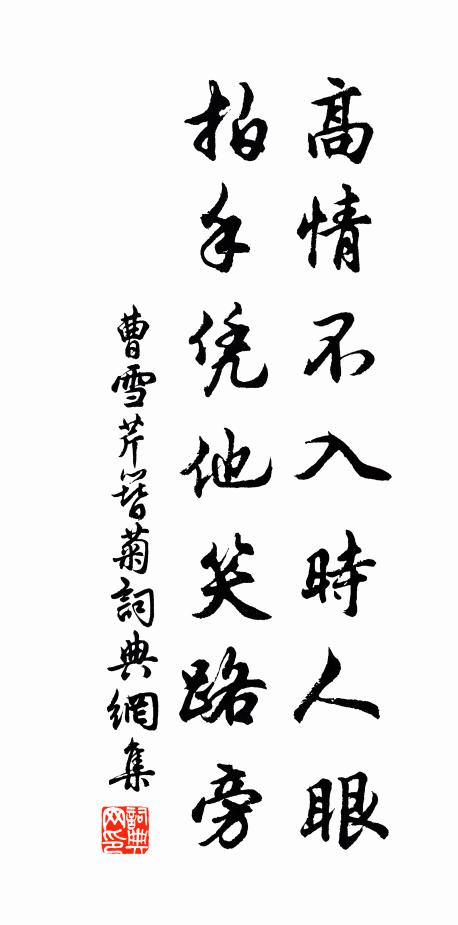 高情不入時人眼
拍手凭他笑路旁
曹雪芹簪菊詞典網集
詞典网印